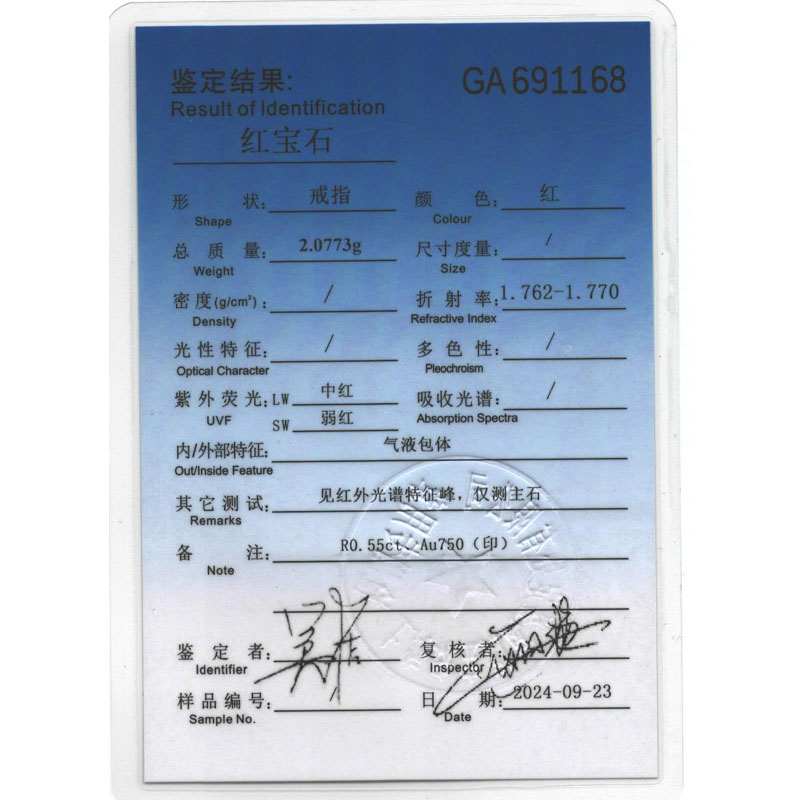 鉴定结果: GA 691168
Result of Identification
红宝石
形 状: 戒指 颜 色: 红
Shape Colour
总 质 量: 2.0773g 尺寸度量: /
Weight Size
密 度(g/cm³): / 折 射 率: 1.762-1.770
Density Refractive Index
光性特征: / 多 色 性: /
Optical Character Pleochroism
紫外荧光: LW 中红 吸收光谱: /
UVF SW 弱红 Absorption Spectra
内/外部特征: 气液包体
Out/Inside Feature
其它测试: 见红外光谱特征峰，仅测主石
Remarks
备 注: R0.55ct、Au750（印）
Note
鉴 定 者: 复 核 者:
Identifier Inspector
样品编号: 日 期: 2024-09-23
Sample No. Date